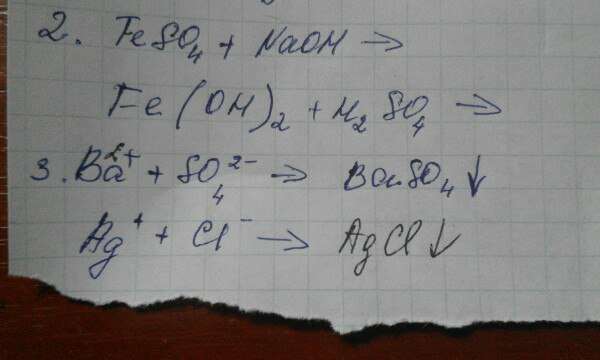 2. FeSO₄ + NaOH →
Fe(OH)₂ + H₂SO₄ →
3. Ba²⁺ + SO₄²⁻ → BaSO₄↓
Ag⁺ + Cl⁻ → AgCl↓